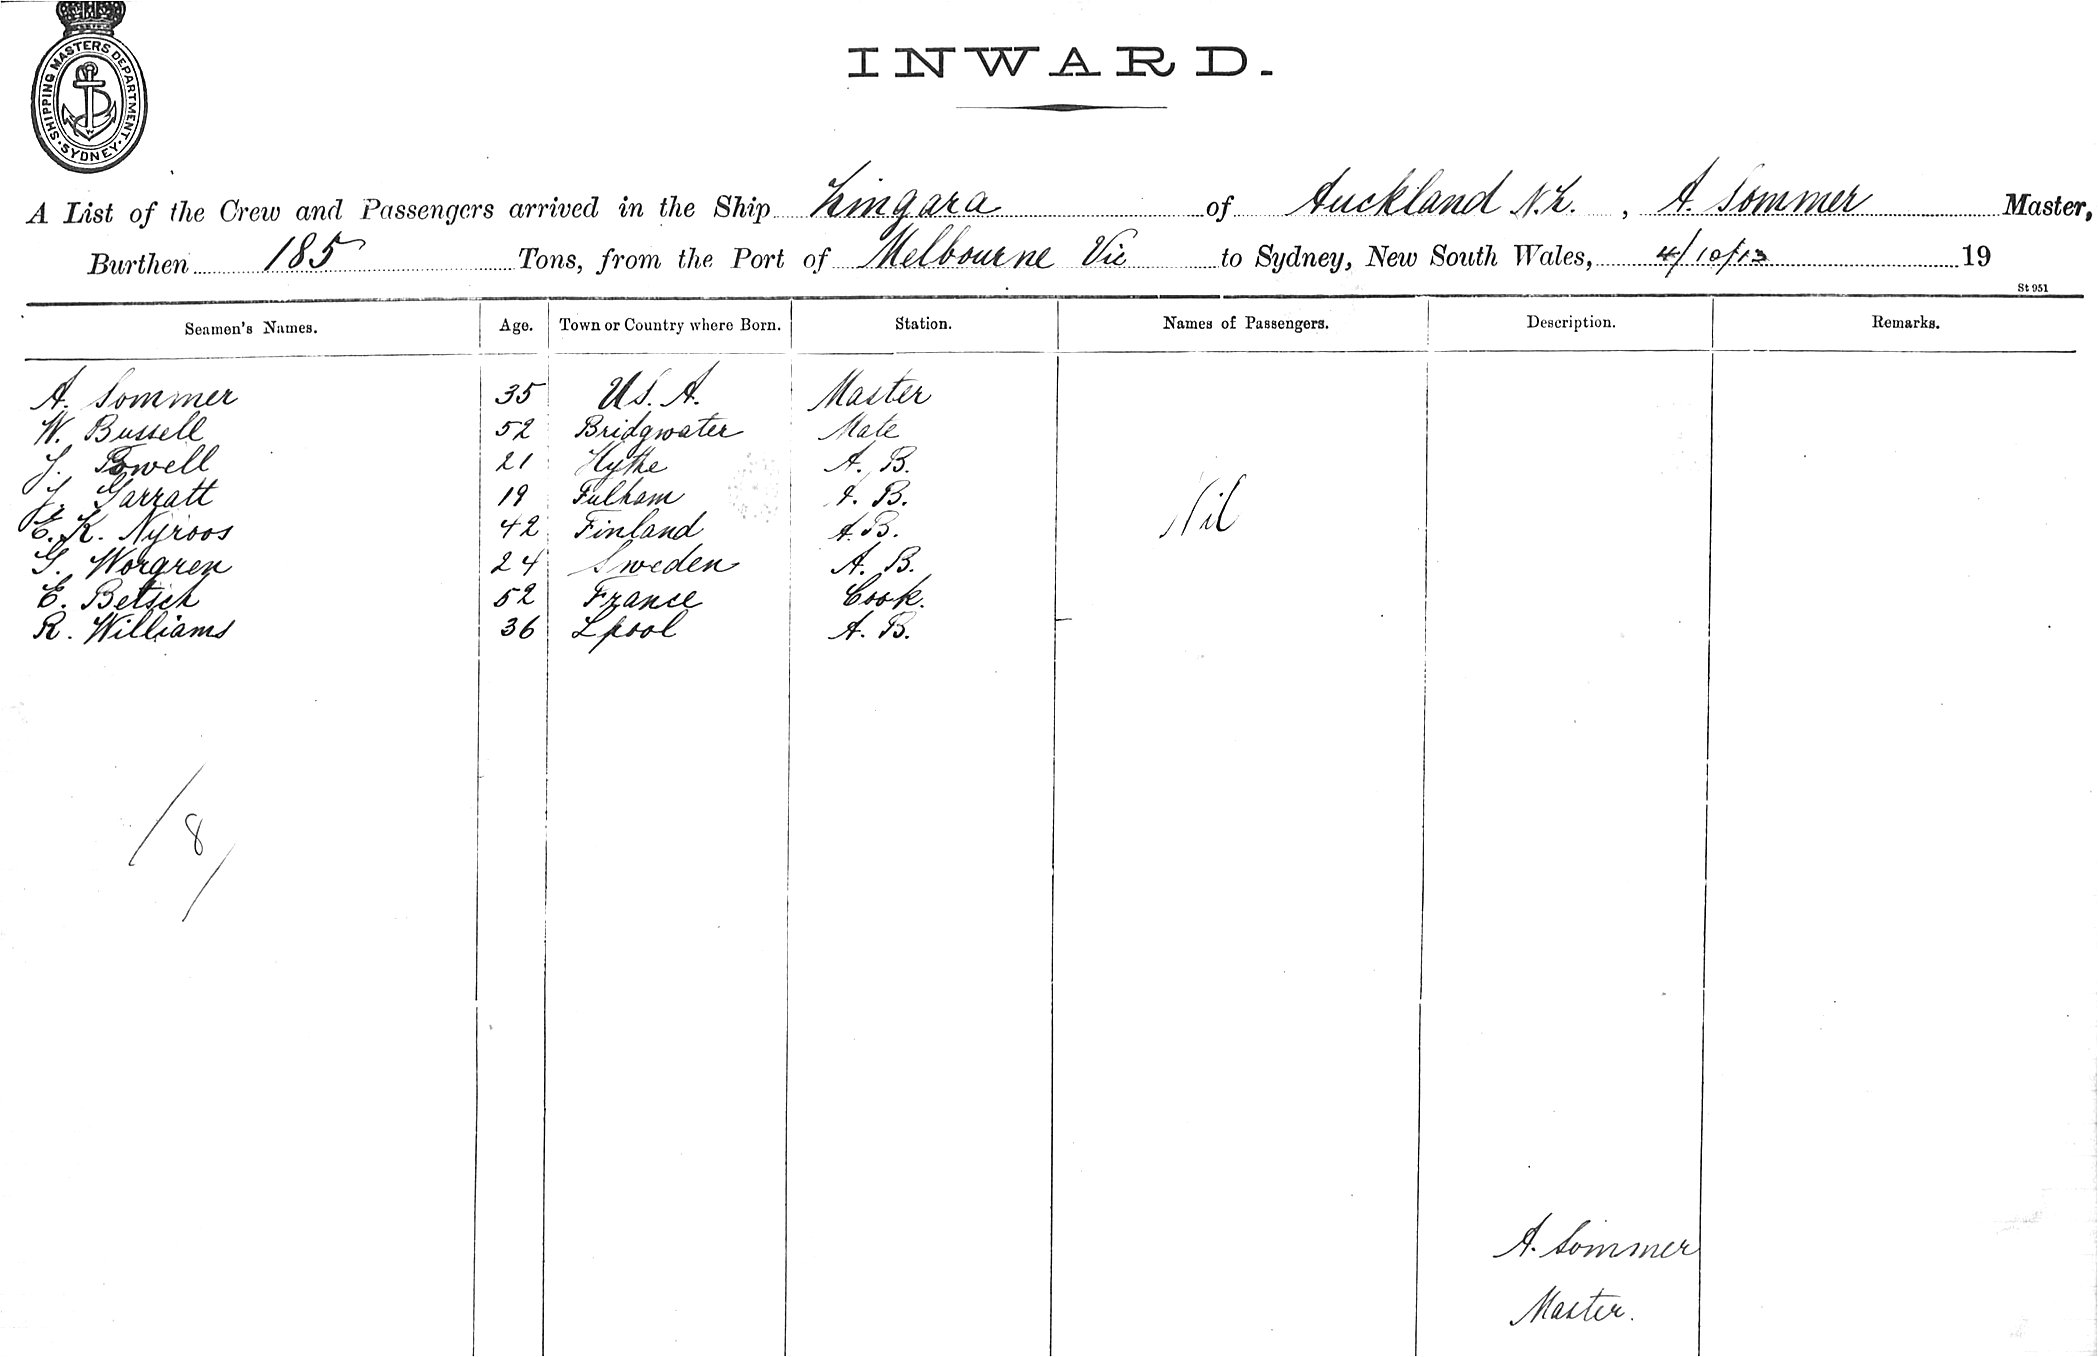 SHIPPING MASTERS DEPARTMENT
SYDNEY
INWARD.
A List of the Crew and Passengers arrived in the Ship Zingara of Auckland N.Z., A. Sommer Master,
Burthen 185 Tons, from the Port of Melbourne Vic to Sydney, New South Wales, 4/10/13 19
St 951
Seamen's Names. Age. Town or Country where Born. Station. Names of Passengers. Description. Remarks.
A. Sommer 35 U.S.A. Master
W. Bussell 52 Bridgwater Mate
J. Powell 21 Hythe A.B.
J. Garratt 19 Fulham A.B.
Nil
E. K. Nyroos 42 Finland A.B.
G. Worgren 24 Sweden A.B.
E. Betsch 52 France Cook.
R. Williams 36 Lpool A.B.
/8/
A. Sommer
Master.